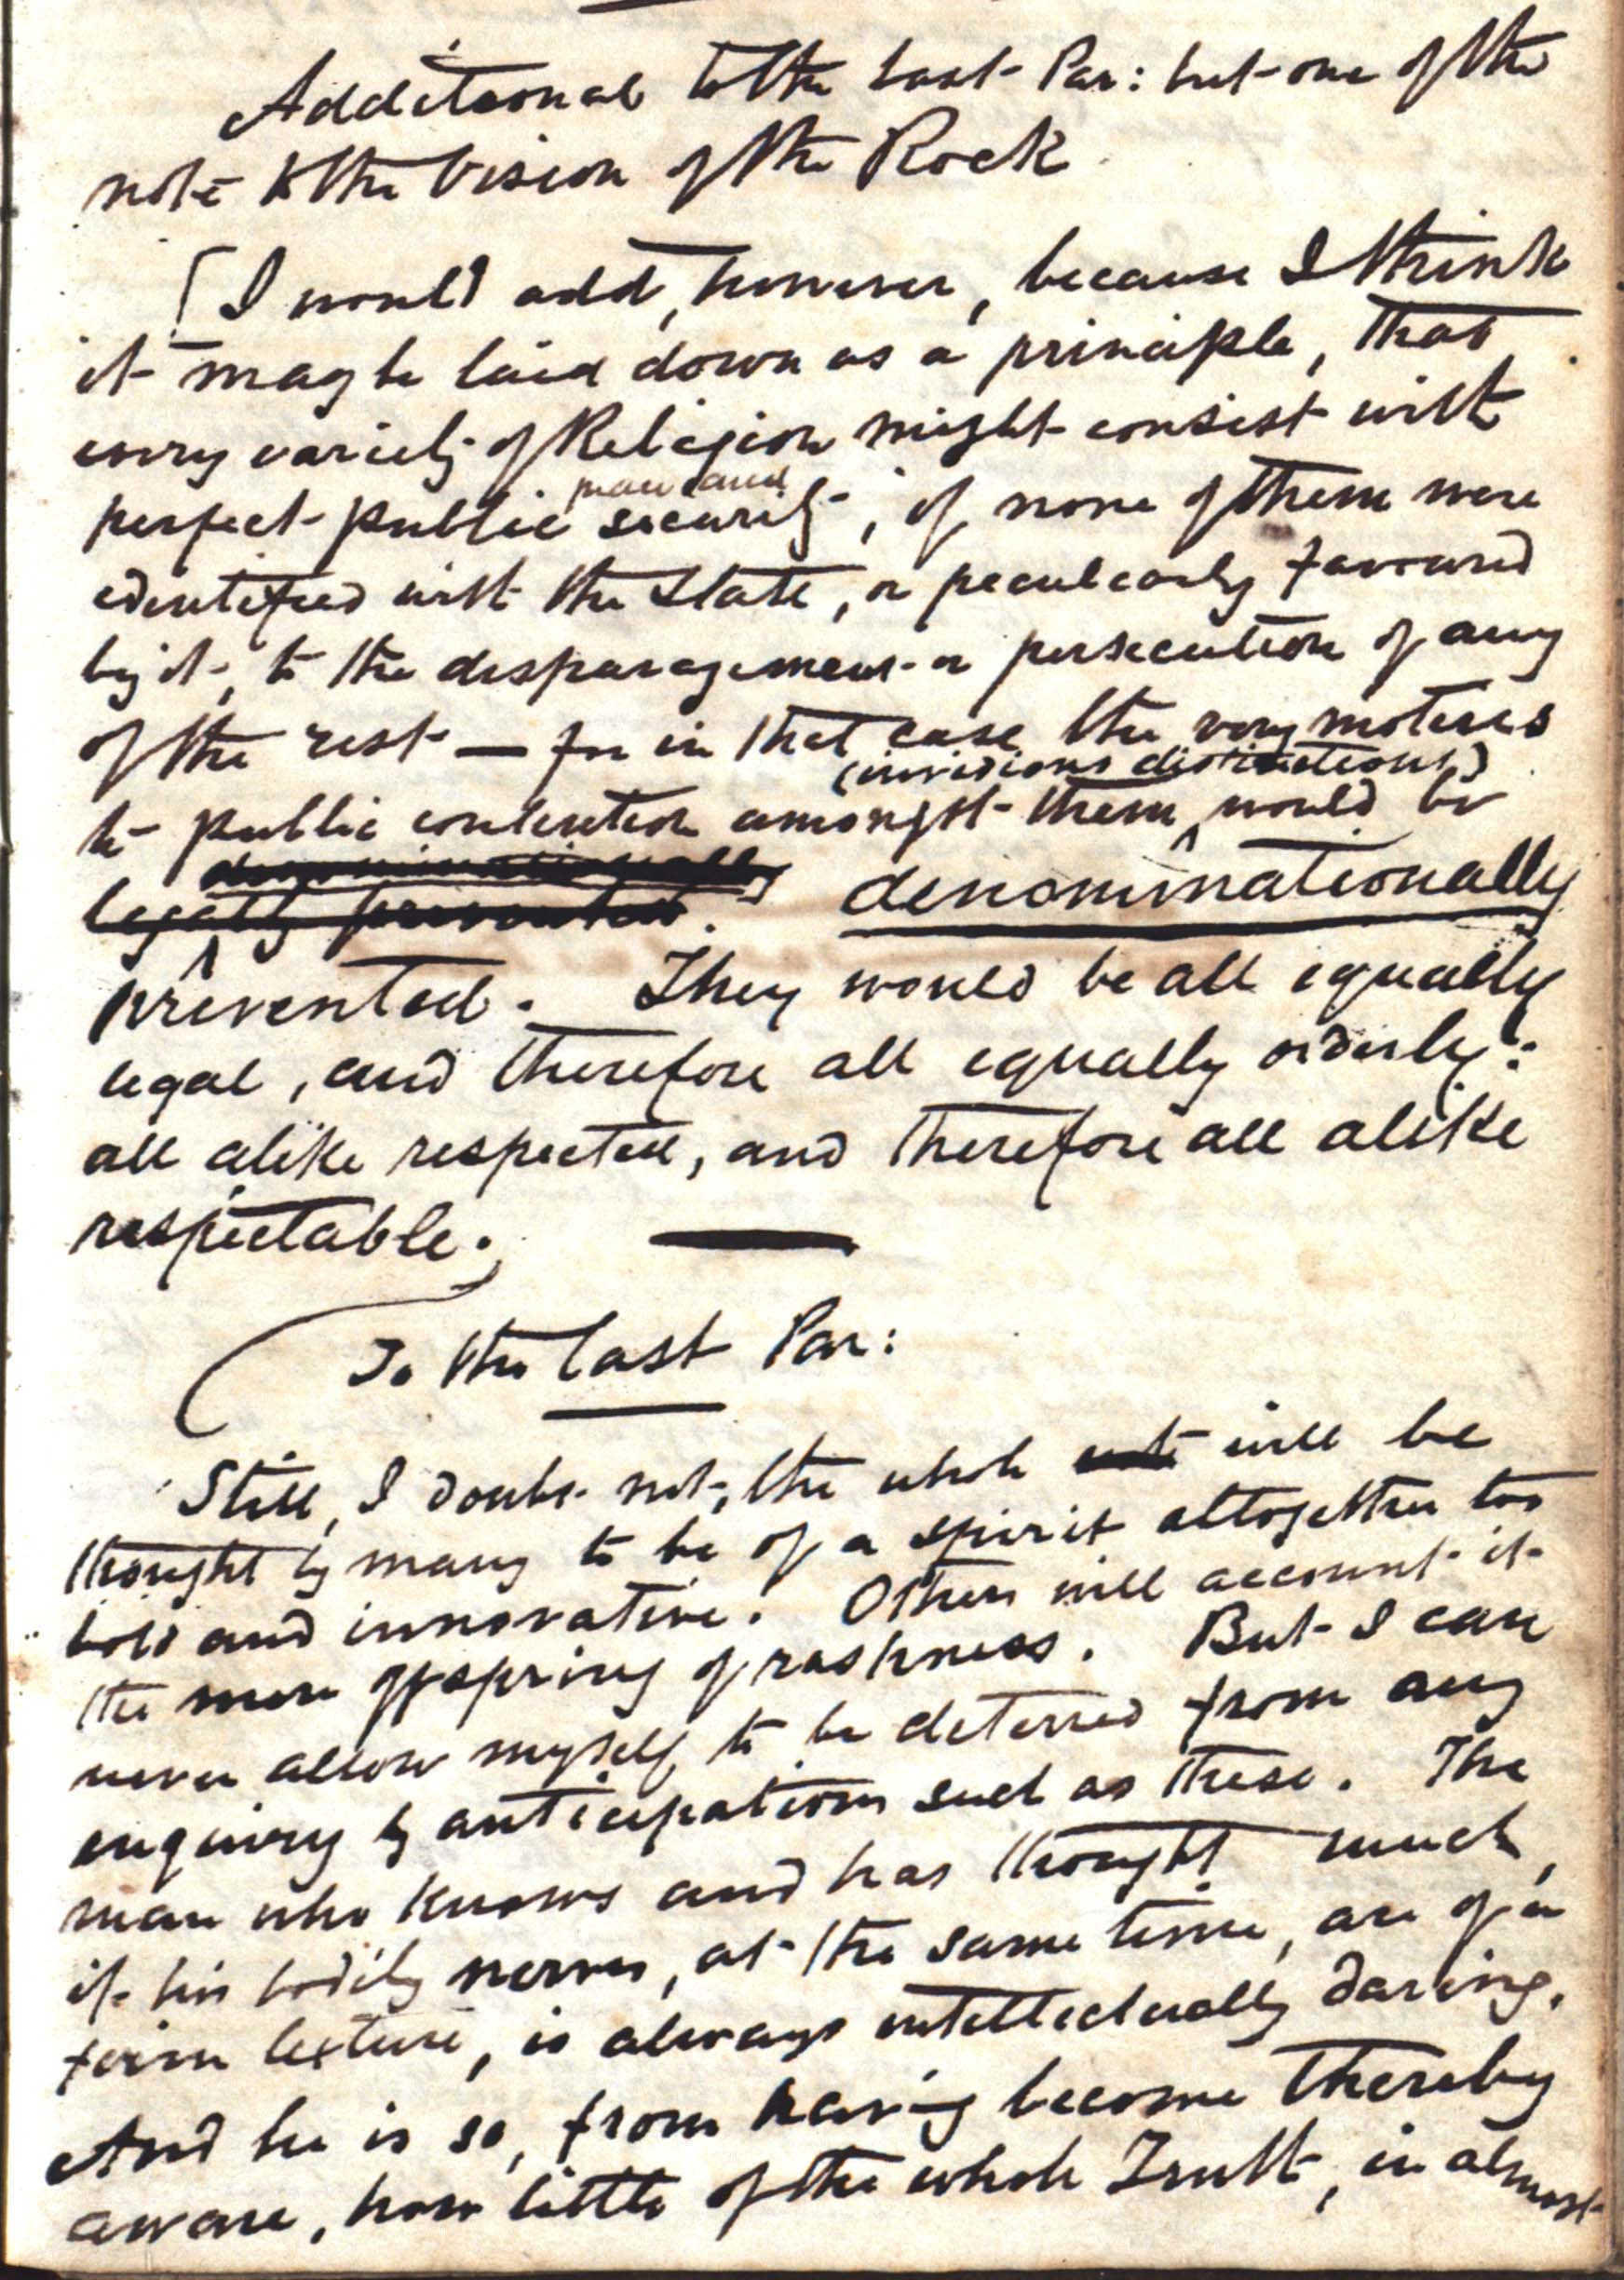 Additional to the last Par: but one of the
note to the Vision of the Rock
[I would add, however, because I think
it may be laid down as a principle, that
every variety of Religion might consist with
peace and
perfect public security, if none of them were
identified with the State, or peculiarly favoured
by it, to the disparagement or persecution of any
of the rest — for in that case the very motives
(invidious distinctions)
to public contention amongst them would be
denominationally
legally prevented. denominationally
prevented. They would be all equally
legal, and therefore all equally orderly:
all alike respected, and therefore all alike
respectable.
To the last Par:
Still, I doubt not, the whole will be
thought by many to be of a spirit altogether too
bold and innovative. Others will account it
the mere offspring of rashness. But I can
never allow myself to be deterred from any
enquiry by anticipations such as these. The
man who knows and has thought much,
if his bodily nerves, at the same time, are of a
firm texture, is always intellectually daring.
And he is so, from having become thereby
aware, how little of the whole Truth, in almost